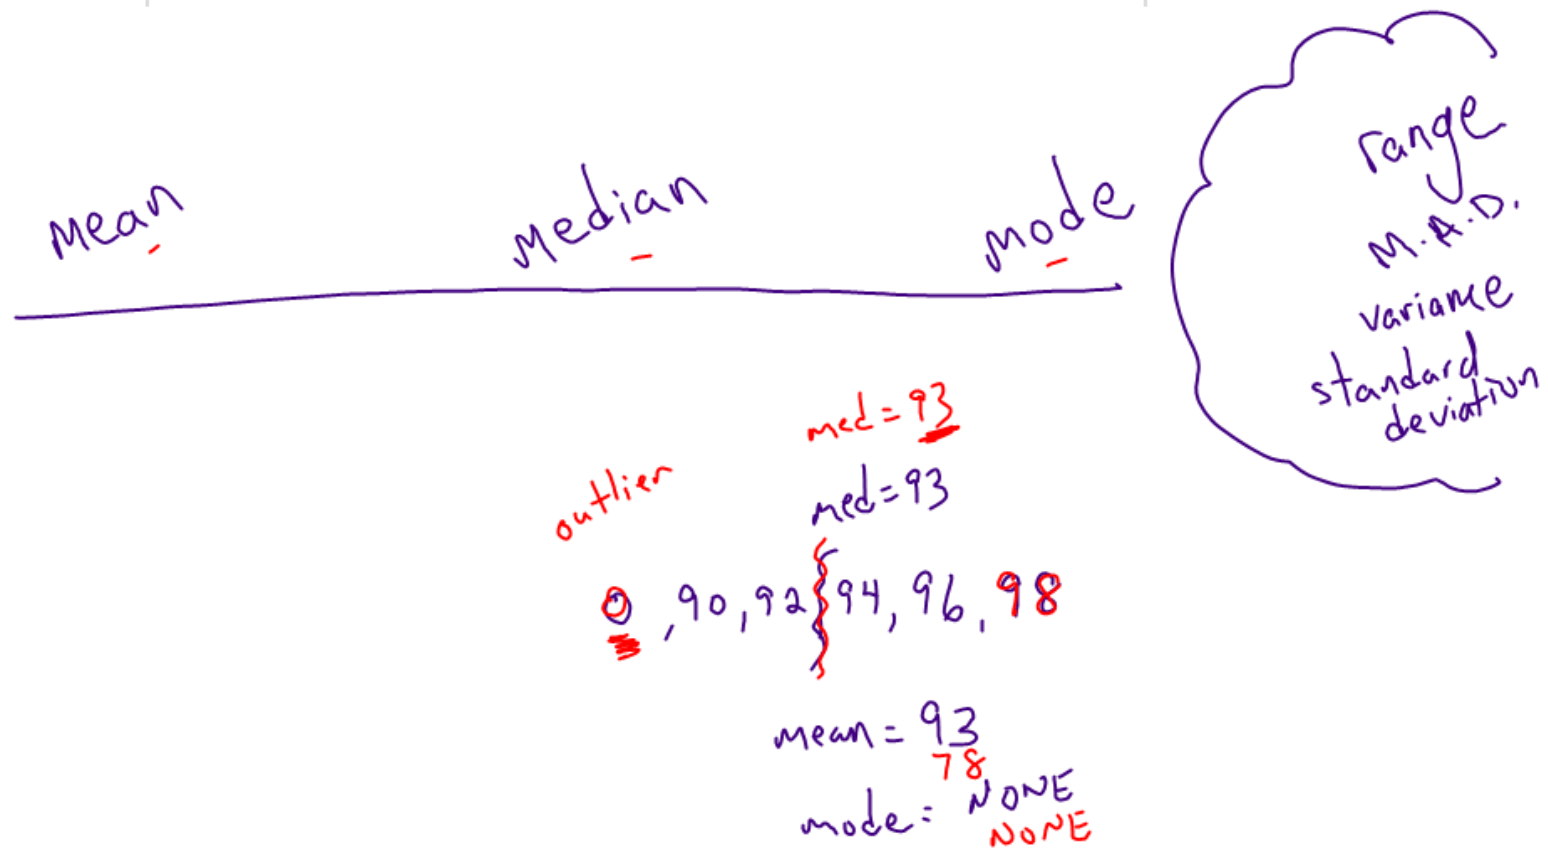 mean median mode
range
M.A.D.
variance
standard
deviation
med = 93
outlier
med = 93
0, 90, 92 94, 96, 98
mean = 93
78
mode = NONE
NONE